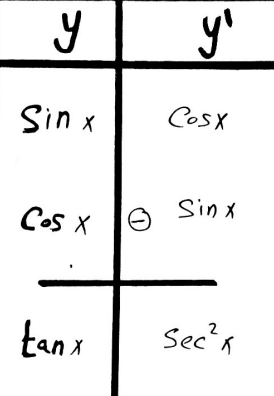 y y'
Sin x Cosx
Cos x ⊖ Sin x
tan x Sec² x